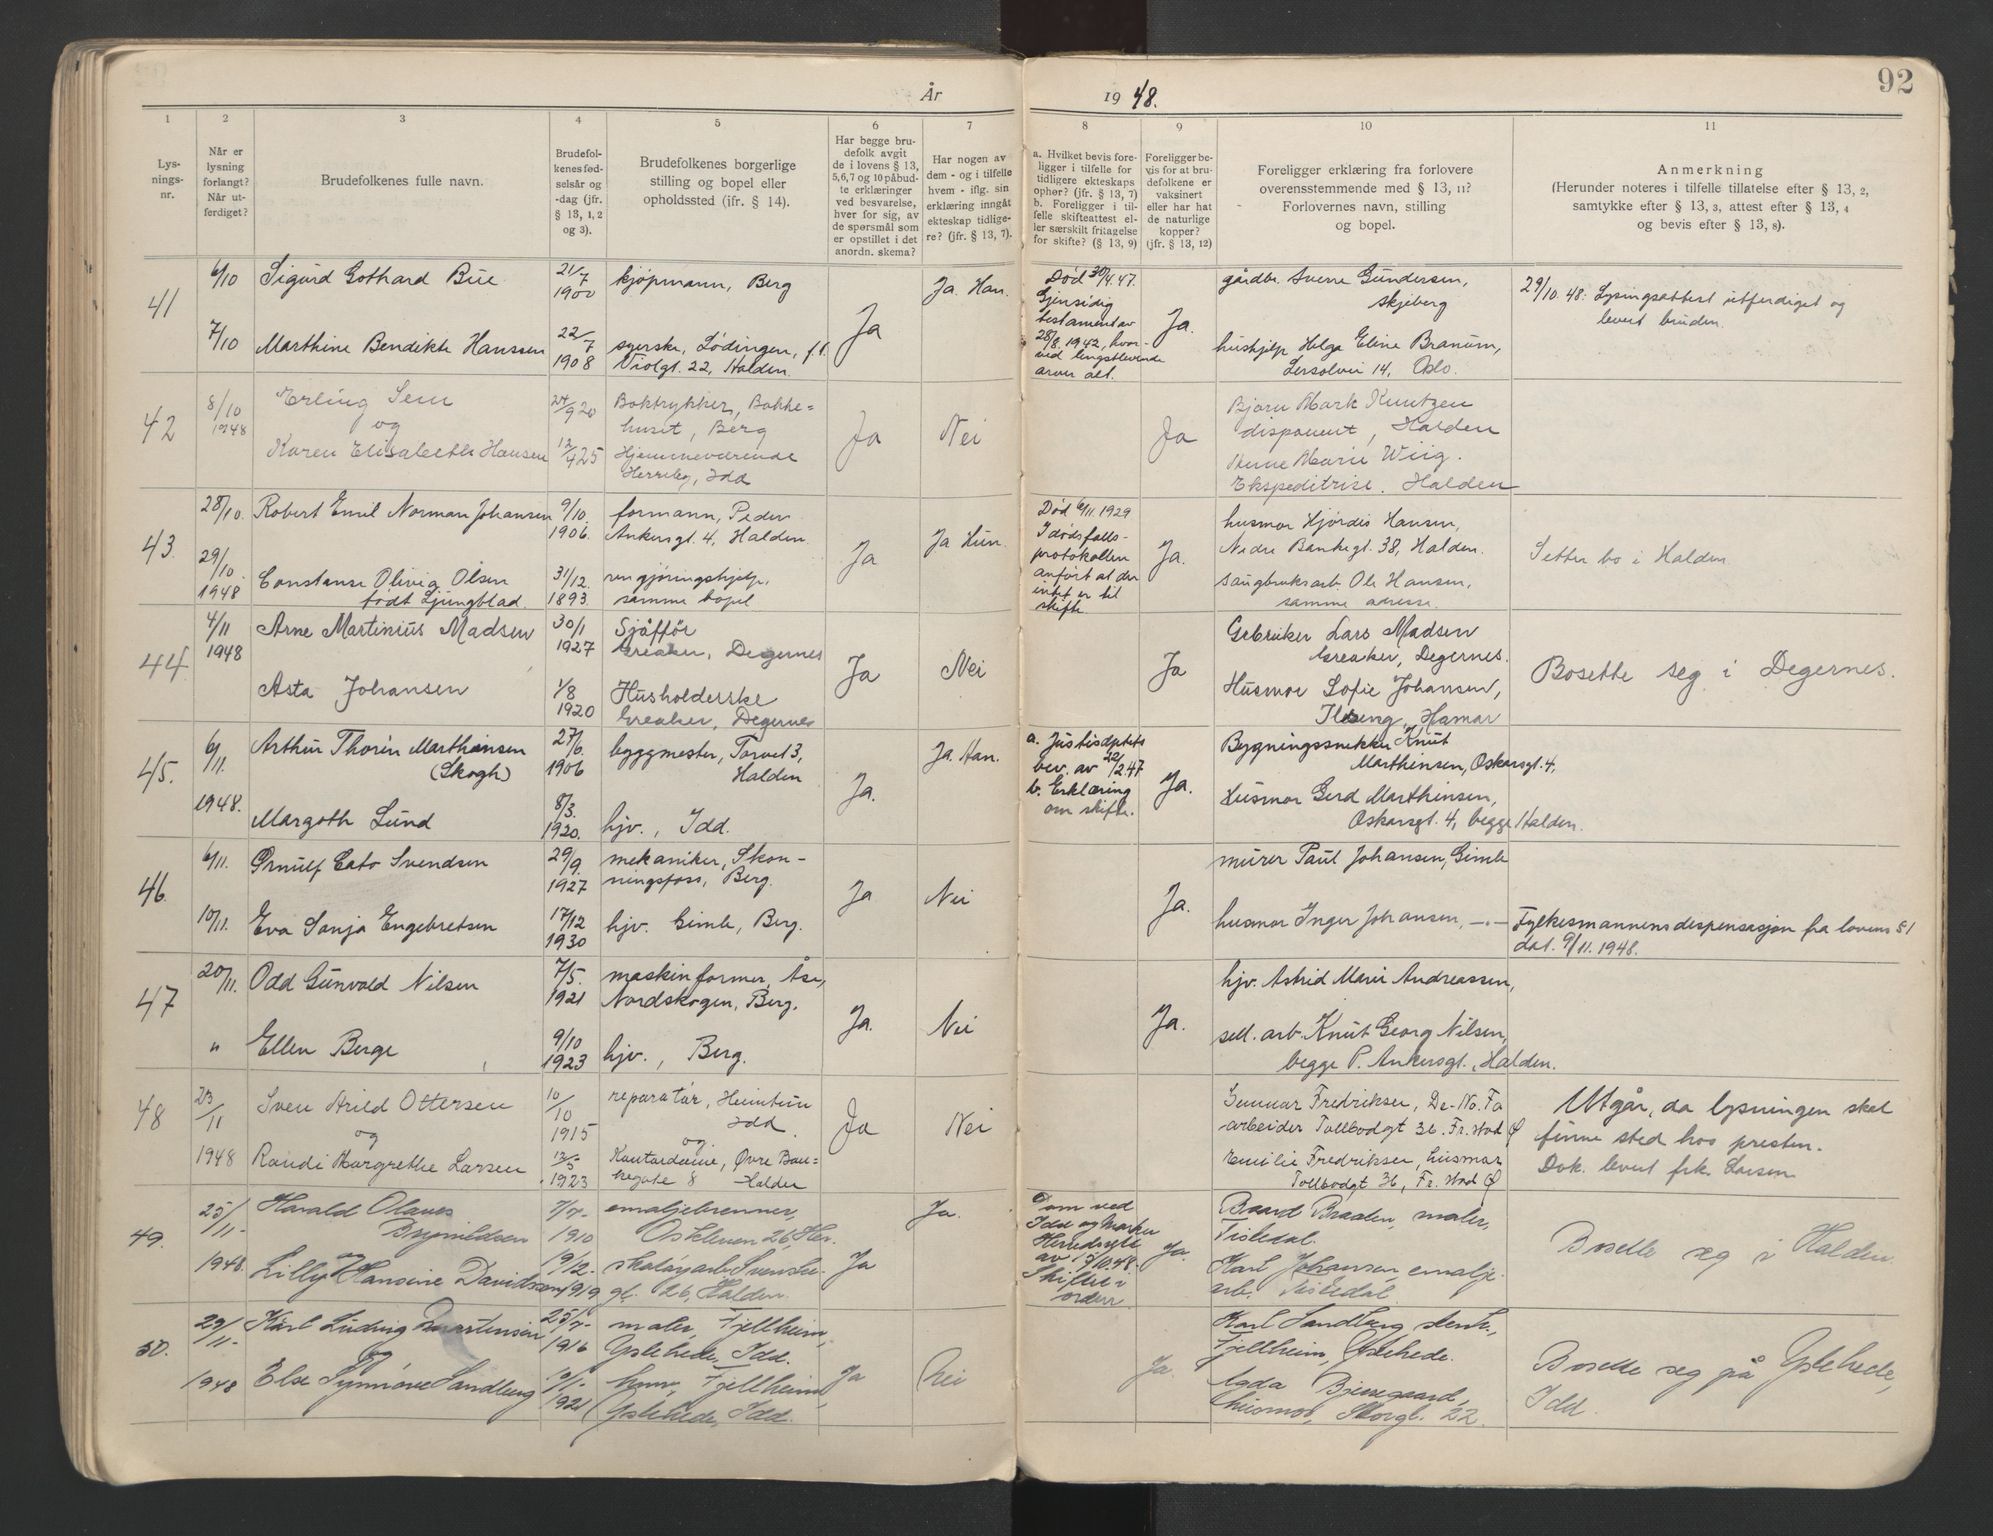 92
År 1948.
1 2 3 4 5 6 7 8 9 10 11
Lys-
nings-
nr.
Når er
lysning
forlangt?
Når ut-
ferdiget?
Brudefolkenes fulle navn.
Brudefol-
kenes fød-
selsår og
-dag (jfr.
§ 13, 1, 2
og 3).
Brudefolkenes borgerlige
stilling og bopel eller
opholdssted (ifr. § 14).
Har begge bru-
defolk avgit
de i lovens § 13,
5, 6, 7 og 10 påbud-
te erklæringer
ved besvarelse,
hver for sig, av
de spørsmål som
er opstillet i det
anordn. skema?
Har nogen av
dem - og i tilfelle
hvem - iflg. sin
erklæring inngåt
ekteskap tidlige-
re? (jfr. § 13, 7).
a. Hvilket bevis fore-
ligger i tilfelle for
tidligere ekteskaps
ophør? (jfr. § 13, 7)
b. Foreligger i til-
felle skifteattest el-
ler særskilt fritagelse
for skifte? (§ 13, 9)
Foreligger be-
vis for at bru-
defolkene er
vaksinert
eller har hat
de naturlige
kopper?
(jfr. § 13, 12)
Foreligger erklæring fra forlovere
overensstemmende med § 13, 11?
Forlovernes navn, stilling
og bopel.
Anmerkning
(Herunder noteres i tilfelle tillatelse efter § 13, 2,
samtykke efter § 13, 3, attest efter § 13, 4
og bevis efter § 13, 8).
41
6/10
7/10
Sigurd Gothard Bue
Marthine Bendikte Hanssen
21/7
1900
22/7
1908
kjøpmann, Berg
syerske, Lødingen, f.t.
Violgt. 22, Halden.
Ja
Ja. Han.
Død 30/4.47.
Gjensidig
testament av
28/8.1942, hvor-
ved lengstlevende
arver alt.
Ja.
gårdbr. Sverre Gundersen,
Skjeberg
hushjelp Helga Eline Branum,
14, Oslo.
29/10.48: Lysingsattest utferdiget og
levert bruden.
42
8/10
1948
Erling Sem
og
Karen Elisabeth Hansen
24/9 20
12/4 25
Boktrykker, Bakke-
huset, Berg
Hjemmeværende
Herrebg, Idd
Ja
Nei
Ja
Bjørn Mark Kuntzen
disponent, Halden
Anne Marie Wiig.
Ekspeditrise. Halden
43.
28/10.
29/10.
1948
Robert Emil Norman Johansen
Constanse Olivia Olsen
født Ljungblad.
9/10.
1906.
31/12.
1893.
formann, Peder
Ankersgt. 4, Halden.
rengjøringshjelp,
samme bopel
Ja
Ja Hun.
Død 6/11.1929
I dødsfalls-
protokollen
anført at der
intet er til
skifte
Ja.
husmor Hjørdis Hansen,
Nedre Bankegt. 38, Halden.
saugbruksarb. Ole Hansen,
samme adresse.
Setter bo i Halden
44.
4/11
1948
Arne Martinius Madsen
Asta Johansen
30/1
1927
1/8
1920
Sjåffør
Greaker, Degernes
Husholderske
Greaker, Degernes
Ja
Nei
Ja
Grbruker Lars Madsen
Greaker, Degernes.
Husmor Sofie Johansen,
Ilseng, Hamar
Bosette seg i Degernes.
45.
6/11.
1948.
Arthur Thorin Marthinsen
(Skogh)
Margoth Lund
27/6.
1906
8/3.
1920.
byggmester, Torvet 3,
Halden
hjv., Idd.
Ja.
Ja. Han.
a. Justisdptets
bev. av 22/2.47
b. Erklæring
om skifte.
Ja.
Bygningssnekker Knut
Marthinsen, Oskarsgt. 4,
Husmor Gerd Marthinsen,
Oskarsgt. 4, begge Halden.
46.
6/11.
10/11.
Ørnulf Cato Svendsen
Eva Sonja Engebretsen
29/9.
1927
17/12
1930
mekaniker, Skon-
ningsfoss, Berg.
hjv. Gimle, Berg.
Ja
Nei
Ja.
murer Paul Johansen, Gimle
husmor Inger Johansen, —.—
Fylkesmannens dispensasjon fra lovens § 1
dat. 9/11.1948.
47
20/11.
"
Odd Gunvald Nilsen
Ellen Berge
7/5.
1921
9/10
1923
maskinformer, Åse,
Nordskogen, Berg.
hjv., Berg.
Ja.
Nei
Ja.
hjv. Astrid Marie Andreassen,
sell. arb. Knut Georg Nilsen,
begge P. Ankersgt., Halden.
48
23/11
1948
Sven Arild Ottersen
og
Randi Margrethe Larsen
10/10
1915
13/5
1923
reparatør, Heimtun
Idd.
og.
Kontordame, Øvre Ban-
kegate 8 Halden
Ja
Nei
Gunnar Fredriksen, De-No-Fa
arbeider Tollbodgt 36. Fr.stad Ø
Emilie Fredriksen, husmor
Tollbodgt 36, Fr.stad Ø
Utgår, da lysningen skal
finne sted hos presten.
Dok. levert frk. Larsen
49.
25/11-
1948.
Harald Olaves
Brynildsen
og
Lilly Hansine Davidsen
7/7-
1910
19/12-
1919
emaljebrenner,
26, Her.
skotøyarb.
gt. 26, Halden.
Ja
Ja.
Dom ved
Idd og Marker
Herredsrett
av 15/10.48.
Skiftet i
orden.
Ja.
Baard Braaten, maler,
Tistedal.
Karl Johansen, emalje-
arb. Tistedal
Bosette seg i Halden
50.
29/11-
1948
Karl Ludvig Martinsen
og
Else Synnøve Sandberg
25/7-
1916
19/1-
1921
maler, Fjellheim,
Ystehede, Idd.
hmv, Fjellheim,
Ystehede, Idd.
Ja
Nei
Ja.
Karl Sandberg stenh.,
Fjellheim, Ystehede.
Agda Bjerregaard,
husmor, Storgt. 22.
Bosette seg på Ystehede,
Idd.